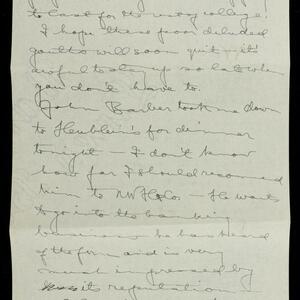 to East for the unity college.
I hope these poor deluded
gents will soon quit - it's
awful to stay up so late when
you don't have to.
John Barber took me down
to Heublein's for dinner
tonight - I don't know
how far I should recommend
him to - He wants
to go into the banking
business - he has heard
of the firm and is very
much impressed by
its reputation -